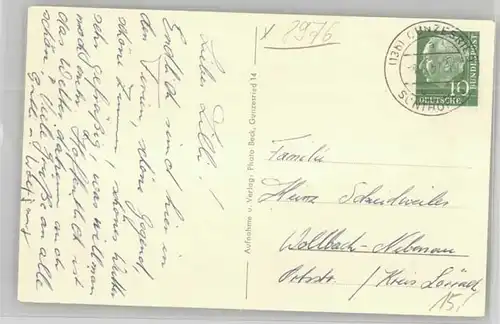 x 8976
(13b) GUNZESRIED
SONTHOFEN
DEUTSCHE
BUNDESPOST
10
Liebe Lilli!
Endlich sind wir hier in
den Ferien, schöne Gegend,
schöne Zimmer, schönes Wetter
sehr gefräßig, was will man
noch mehr. Hoffentlich ist
das Wetter daheim auch
schön. Viele Grüße an alle
Aufnahme u. Verlag: Photo Beck, Gunzesried 14
Familie
Heinz Scheidweiler
Wallbach-Nebenau
Ortsstr. / Kreis Lörrach
15,-